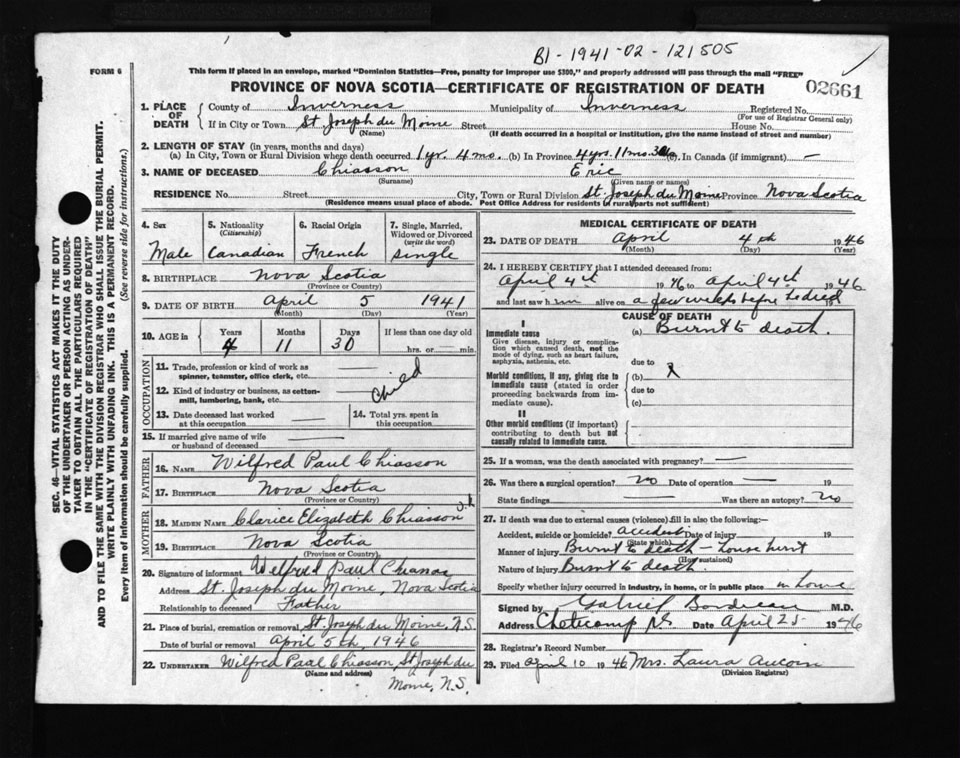 B1-1941-02-121505
FORM 6
This form if placed in an envelope, marked "Dominion Statistics—Free, penalty for improper use $300," and properly addressed will pass through the mail "FREE"
PROVINCE OF NOVA SCOTIA—CERTIFICATE OF REGISTRATION OF DEATH
02661
1. PLACE OF DEATH County of Inverness Municipality of Inverness Registered No.
(For use of Registrar General only)
If in City or Town St Joseph du Moine Street House No.
(Name) (If death occurred in a hospital or institution, give the name instead of street and number)
2. LENGTH OF STAY (in years, months and days)
(a) In City, Town or Rural Division where death occurred 1 yr. 4 mo. (b) In Province 4 yrs. 11 ms. (c) In Canada (if immigrant) —
3. NAME OF DECEASED Chiasson Eric
(Surname) (Given name or names)
RESIDENCE No. Street City, Town or Rural Division St. Joseph du Moine Province Nova Scotia
(Residence means usual place of abode. Post Office Address for residents in rural parts not sufficient)
SEC. 46—VITAL STATISTICS ACT MAKES IT THE DUTY
OF THE UNDERTAKER OR PERSON ACTING AS UNDER-
TAKER TO OBTAIN ALL THE PARTICULARS REQUIRED
IN THE "CERTIFICATE OF REGISTRATION OF DEATH"
AND TO FILE THE SAME WITH THE DIVISION REGISTRAR WHO SHALL ISSUE THE BURIAL PERMIT.
WRITE PLAINLY WITH UNFADING INK. THIS IS A PERMANENT RECORD.
Every item of information should be carefully supplied. (See reverse side for instructions.)
4. Sex Male
5. Nationality (Citizenship) Canadian
6. Racial Origin French
7. Single, Married, Widowed or Divorced (write the word) Single
8. BIRTHPLACE Nova Scotia
(Province or Country)
9. DATE OF BIRTH April 5 1941
(Month) (Day) (Year)
10. AGE in Years Months Days If less than one day old
4 11 30 hrs. or min.
OCCUPATION
11. Trade, profession or kind of work as
spinner, teamster, office clerk, etc.
12. Kind of industry or business, as cotton-
mill, lumbering, bank, etc. Child
13. Date deceased last worked
at this occupation
14. Total yrs. spent in
this occupation
15. If married give name of wife
or husband of deceased
FATHER
16. NAME Wilfred Paul Chiasson
17. BIRTHPLACE Nova Scotia
(Province or Country)
MOTHER
18. MAIDEN NAME Clarice Elizabeth Chiasson
19. BIRTHPLACE Nova Scotia
(Province or Country)
20. Signature of informant Wilfred Paul
Address St. Joseph du Moine, Nova Scotia
Relationship to deceased Father
21. Place of burial, cremation or removal St Joseph du Moine, N.S.
Date of burial or removal April 5th, 1946
22. UNDERTAKER Wilfred Paul Chiasson, St Joseph du
(Name and address) Moine, N.S.
MEDICAL CERTIFICATE OF DEATH
23. DATE OF DEATH April 4th 1946
(Month) (Day) (Year)
24. I HEREBY CERTIFY that I attended deceased from:
April 4th 1946 to April 4th 1946
and last saw him alive on a few weeks before he died 19
CAUSE OF DEATH
I
Immediate cause (a) Burnt to death.
Give disease, injury or complica-
tion which caused death, not the
mode of dying, such as heart failure,
asphyxia, asthenia, etc.
due to
Morbid conditions, if any, giving rise to (b)
immediate cause (stated in order
proceeding backwards from im-
mediate cause).
due to
(c)
II
Other morbid conditions (if important)
contributing to death but not
causally related to immediate cause.
25. If a woman, was the death associated with pregnancy? —
26. Was there a surgical operation? no Date of operation — 19
State findings Was there an autopsy? no
27. If death was due to external causes (violence) fill in also the following:—
Accident, suicide or homicide? accident Date of injury 19
(State which)
Manner of injury Burnt to death — house burnt
(How sustained)
Nature of injury Burnt to death
Specify whether injury occurred in industry, in home, or in public place in home
Signed by Gabriel Boudreau M.D.
Address Cheticamp N.S. Date April 25 1946
28. Registrar's Record Number
29. Filed April 10 1946 Mrs. Laura Aucoin
(Division Registrar)